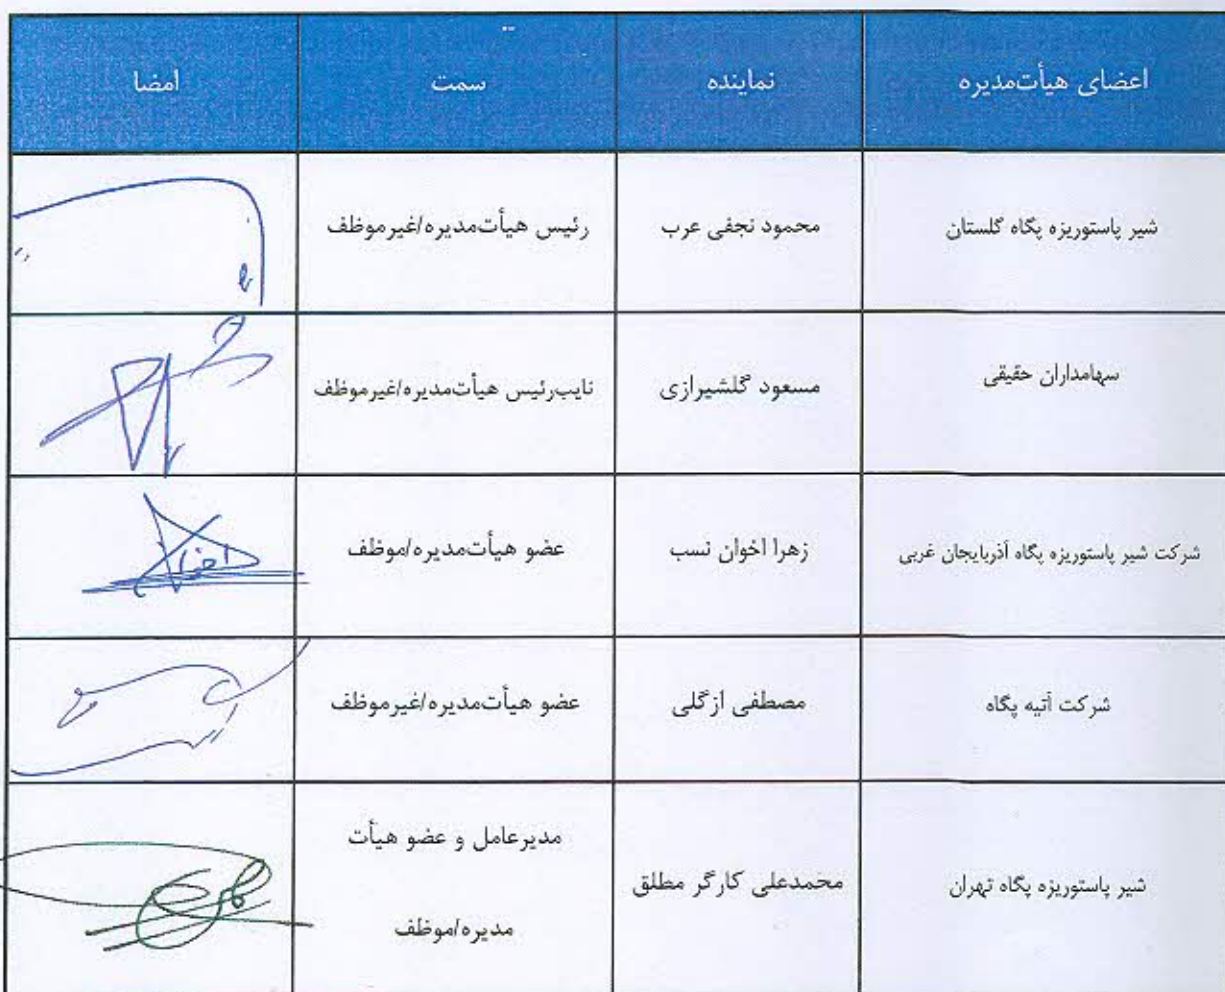 اعضای هیأت‌مدیره نماینده سمت امضا
شیر پاستوریزه پگاه گلستان محمود نجفی عرب رئیس هیأت‌مدیره/غیرموظف
سهامداران حقیقی مسعود گلشیرازی نایب‌رئیس هیأت‌مدیره/غیرموظف
شرکت شیر پاستوریزه پگاه آذربایجان غربی زهرا اخوان نسب عضو هیأت‌مدیره/موظف
شرکت آتیه پگاه مصطفی ازگلی عضو هیأت‌مدیره/غیرموظف
شیر پاستوریزه پگاه تهران محمدعلی کارگر مطلق مدیرعامل و عضو هیأت
مدیره/موظف